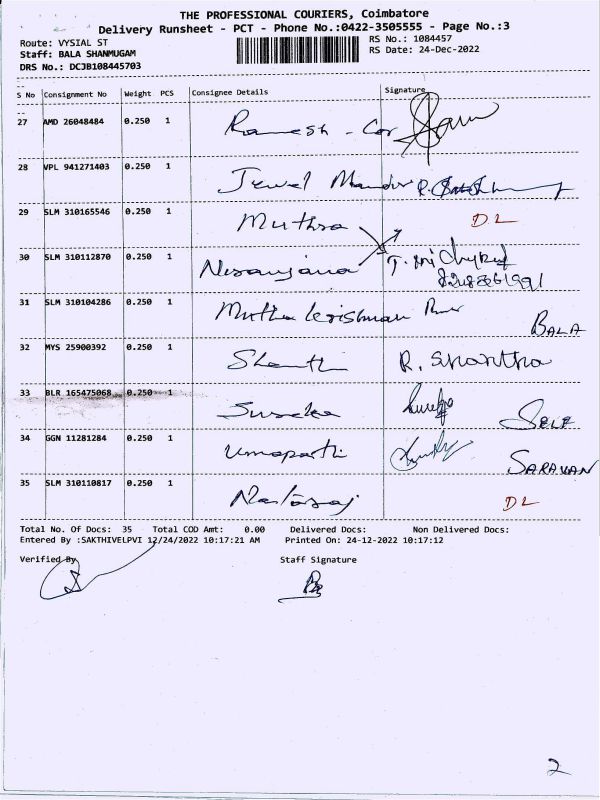 THE PROFESSIONAL COURIERS, Coimbatore
Delivery Runsheet - PCT - Phone No.:0422-3505555 - Page No.:3
Route: VYSIAL ST
RS No.: 1084457
Staff: BALA SHANMUGAM
RS Date: 24-Dec-2022
DRS No.: DCJB108445703
S No Consignment No Weight PCS Consignee Details Signature
27 AMD 26048484 0.250 1 Ramesh - Car
28 VPL 941271403 0.250 1 Jewel
29 SLM 310165546 0.250 1 Muthra DL
30 SLM 310112870 0.250 1 Niranjana
31 SLM 310104286 0.250 1 BALA
32 MYS 25900392 0.250 1 Shanthi R. Shantha
33 BLR 165475068 0.250 1 Sureka SELF
34 GGN 11281284 0.250 1 Umapathi SARAVAN
35 SLM 310110817 0.250 1 Nataraj DL
Total No. Of Docs: 35 Total COD Amt: 0.00 Delivered Docs: Non Delivered Docs:
Entered By :SAKTHIVELPVI 12/24/2022 10:17:21 AM Printed On: 24-12-2022 10:17:12
Verified By Staff Signature
2